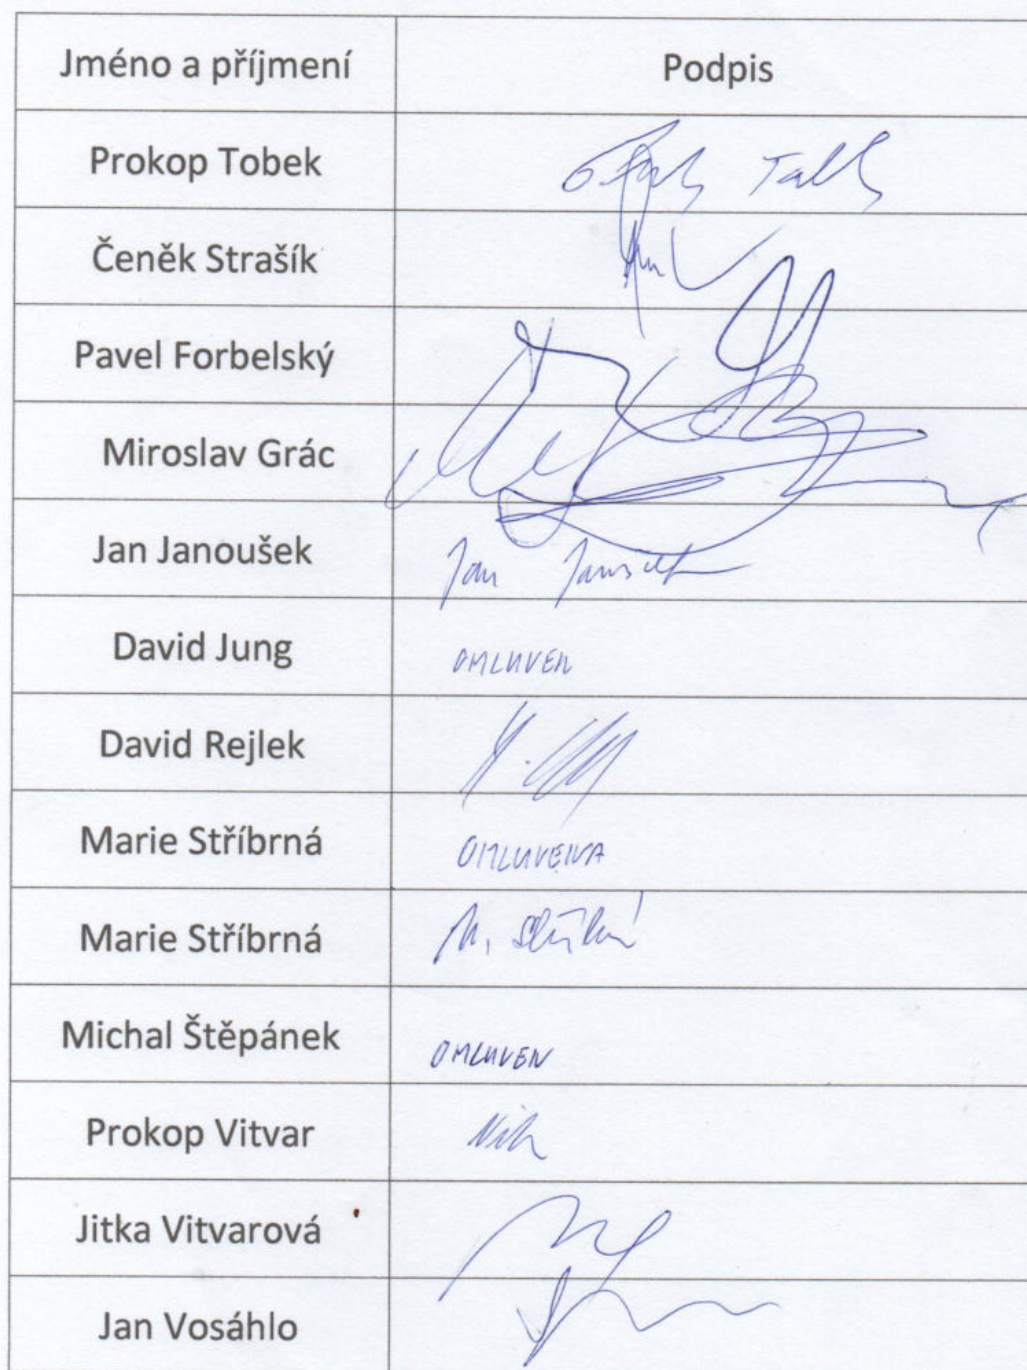 Jméno a příjmení Podpis
Prokop Tobek
Čeněk Strašík
Pavel Forbelský
Miroslav Grác
Jan Janoušek Jan Janoušek
David Jung OMLUVEN
David Rejlek
Marie Stříbrná OMLUVENA
Marie Stříbrná M. Stříbrná
Michal Štěpánek OMLUVEN
Prokop Vitvar
Jitka Vitvarová
Jan Vosáhlo